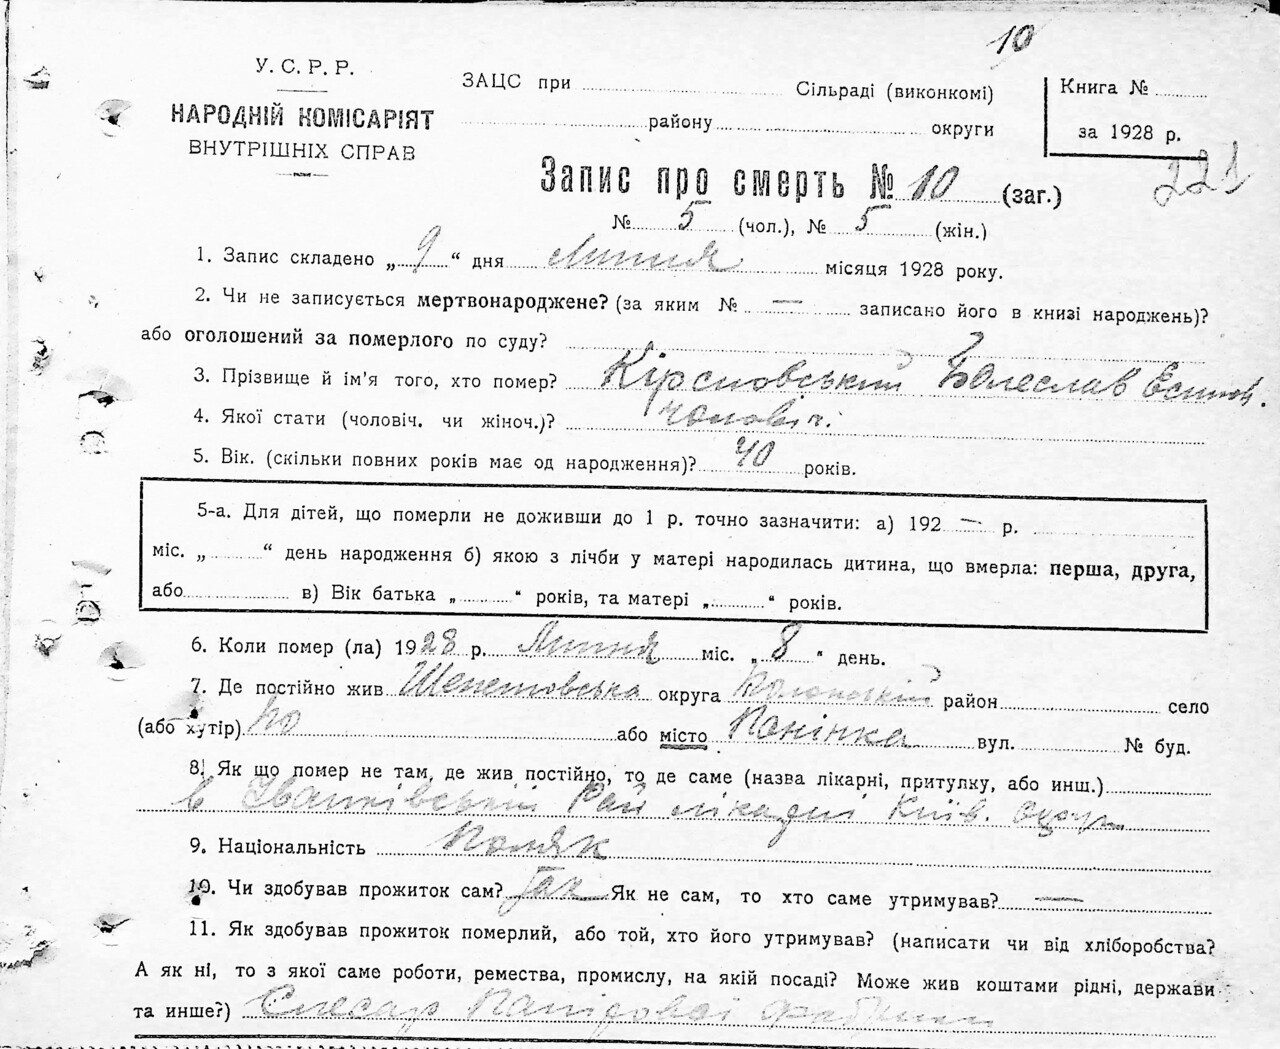 10
У. С. Р. Р.
НАРОДНІЙ КОМІСАРІЯТ
ВНУТРІШНІХ СПРАВ
ЗАЦС при Сільраді (виконкомі)
району округи
Книга №
за 1928 р.
221
Запис про смерть № 10 (заг.)
№ 5 (чол.), № 5 (жін.)
1. Запис складено „ 9 “ дня Липня місяця 1928 року.
2. Чи не записується мертвонароджене? (за яким № — записано його в книзі народжень)?
або оголошений за померлого по суду?
3. Прізвище й ім'я того, хто помер? Болеслав
4. Якої стати (чоловіч. чи жіноч.)? чоловіч.
5. Вік. (скільки повних років має од народження)? 40 років.
5-а. Для дітей, що померли не доживши до 1 р. точно зазначити: а) 192 — р.
міс. „ “ день народження б) якою з лічби у матері народилась дитина, що вмерла: перша, друга,
або в) Вік батька „ “ років, та матері „ “ років.
6. Коли помер (ла) 1928 р. Липня міс. „ 8 “ день.
7. Де постійно жив Шепетовська округа район село
(або хутір) або місто Понінка вул. № буд.
8. Як що помер не там, де жив постійно, то де саме (назва лікарні, притулку, або инш.)
в Іванківській Рай лікарні Київ. округи
9. Національність Поляк
10. Чи здобував прожиток сам? Так Як не сам, то хто саме утримував? —
11. Як здобував прожиток померлий, або той, хто його утримував? (написати чи від хліборобства?
А як ні, то з якої саме роботи, ремества, промислу, на якій посаді? Може жив коштами рідні, держави
та инше?) Слесар Папірової фабрики